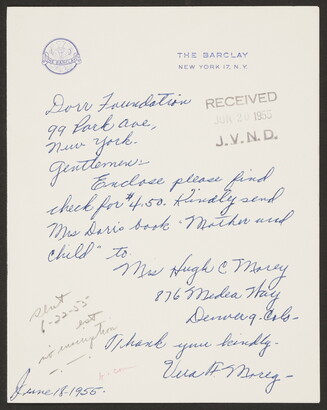 THE BARCLAY
THE BARCLAY
NEW YORK 17, N.Y.
RECEIVED
JUN 20 1955
J. V. N. D.
Dorr Foundation
99 Park Ave,
New York.
Gentlemen:
Enclose please find
check for $4.50. Kindly send
Mrs Dorr's book "Mother and
child" to
Mrs Hugh C Morey
876 Medea Way
Denver 9. Colo-
Thank you kindly.
Vera H Morey-
sent
6-22-55
no inscription
June 18-1955.